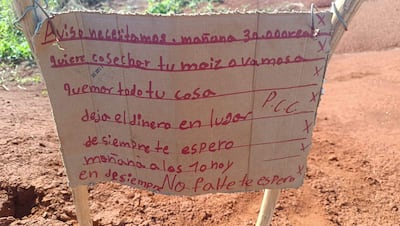 Aviso necesitamos. mañana 30.000rea
quiere cosechar tu maiz o vamosa
quemar todo tu cosa
P.C.C
deja el dinero en lugar
desiempre te espero
mañana a las 10 hoy
en desiempre No falte te espero